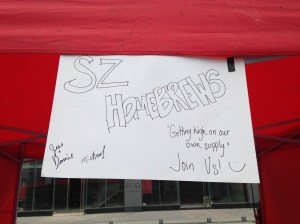 SZ
HOMEBREWS
"Getting high on our
own supply"
Join Us!
Michael